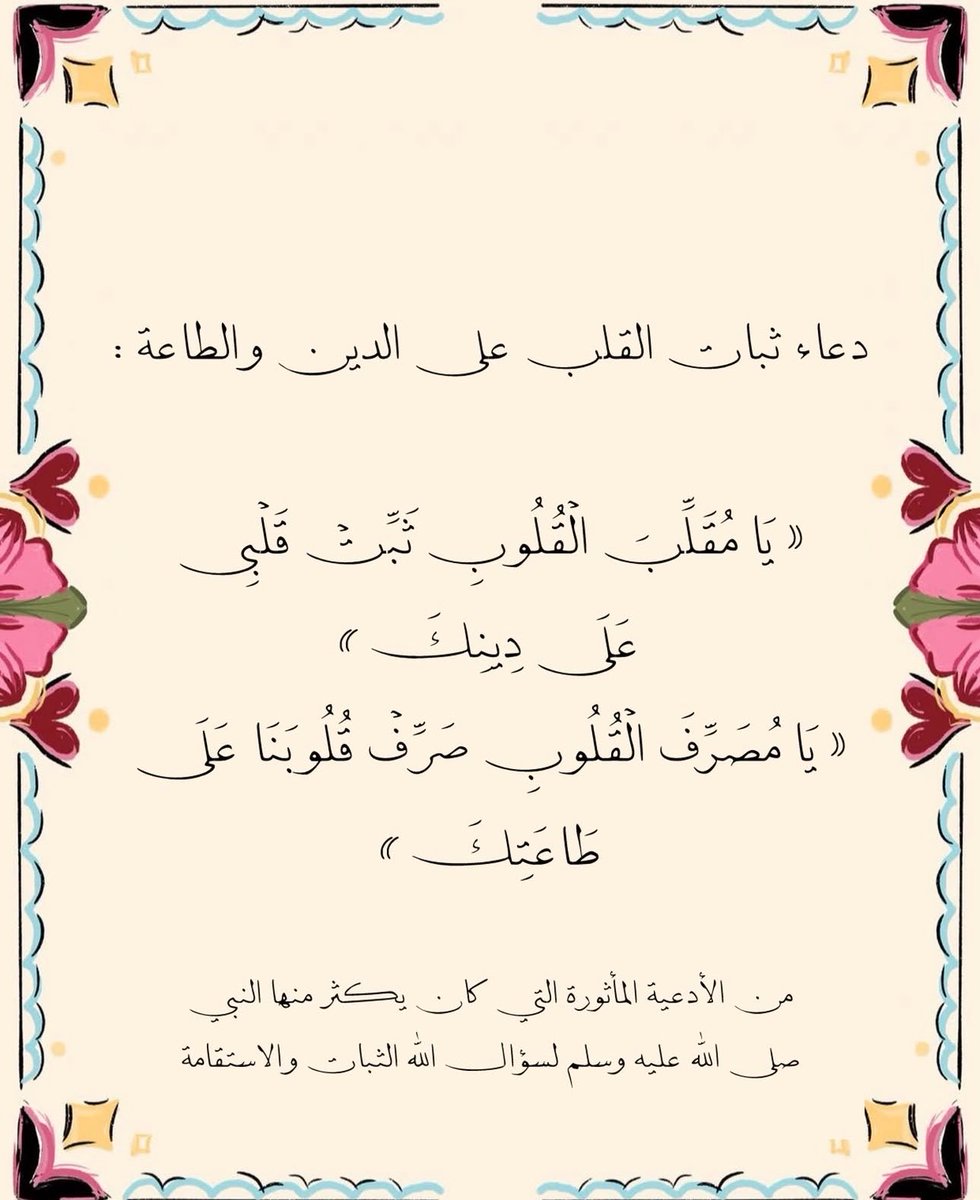 دعاء ثبات القلب على الدين والطاعة :
« يَا مُقَلِّبَ الْقُلُوبِ ثَبِّتْ قَلْبِي
عَلَى دِينِكَ »
« يَا مُصَرِّفَ الْقُلُوبِ صَرِّفْ قُلُوبَنَا عَلَى
طَاعَتِكَ »
من الأدعية المأثورة التي كان يكثر منها النبي
صلى الله عليه وسلم لسؤال الله الثبات والاستقامة